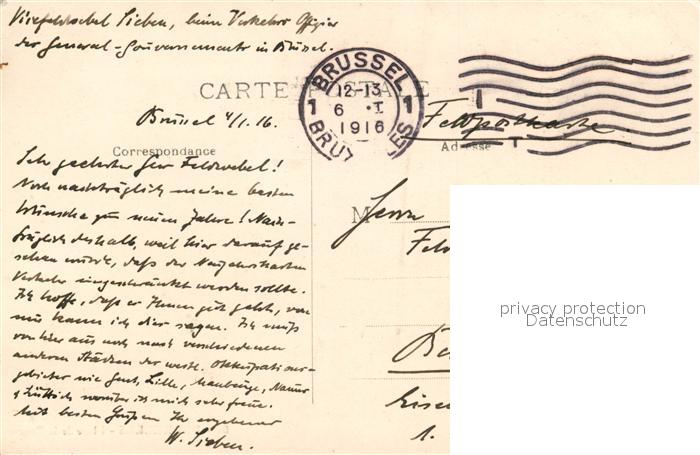 Vizefeldwebel Sieben, beim Verkehrs Offizier
des General-Gouvernements in Brüssel.
CARTE POSTALE
BRUSSEL
12-13
1 6 I 1
1916
BRUXELLES
Brüssel 4/1.16.
Feldpostkarte
Correspondance
Adresse
Sehr geehrter Herr Feldwebel!
Noch nachträglich meine besten
Wünsche zum neuen Jahre! Nach-
träglich deshalb, weil hier darauf ge-
sehen wurde, daß der Neujahrskarten
Verkehr eingeschränkt werden sollte.
Ich hoffe, daß es Ihnen gut geht, von
mir kann ich dies sagen. Ich muß
von hier aus noch nach verschiedenen
anderen Städten der westl. Okkupations-
gebietes wie Gent, Lille, Maubeuge, Namur
& Lüttich worüber ich mich sehr freue.
Mit besten Grüßen Ihr ergebener
W. Sieben.
M
Herrn
Fel
privacy protection
Datenschutz
1.